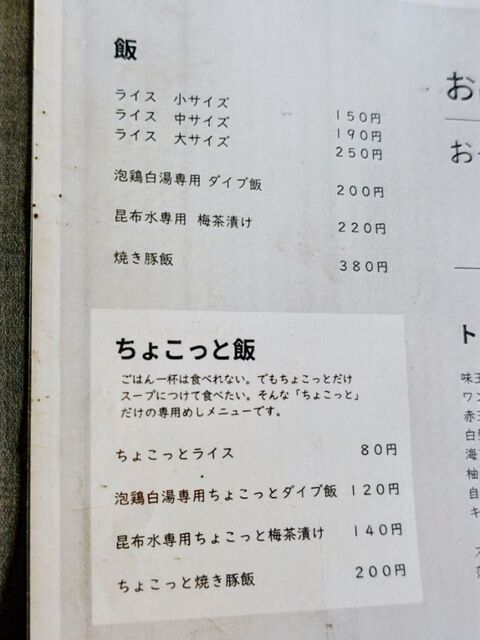 飯
ライス 小サイズ 150円
ライス 中サイズ 190円
ライス 大サイズ 250円
泡鶏白湯専用 ダイブ飯 200円
昆布水専用 梅茶漬け 220円
焼き豚飯 380円
ちょこっと飯
ごはん一杯は食べれない。でもちょこっとだけ
スープにつけて食べたい。そんな「ちょこっと」
だけの専用めしメニューです。
ちょこっとライス 80円
泡鶏白湯専用ちょこっとダイブ飯 120円
昆布水専用ちょこっと梅茶漬け 140円
ちょこっと焼き豚飯 200円
お
お
ト
味玉
ワン
赤玉
白
海
柚
自
キ